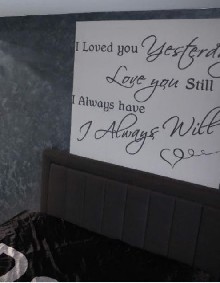 I Loved you Yesterday
Love you Still
I Always have
I Always Will